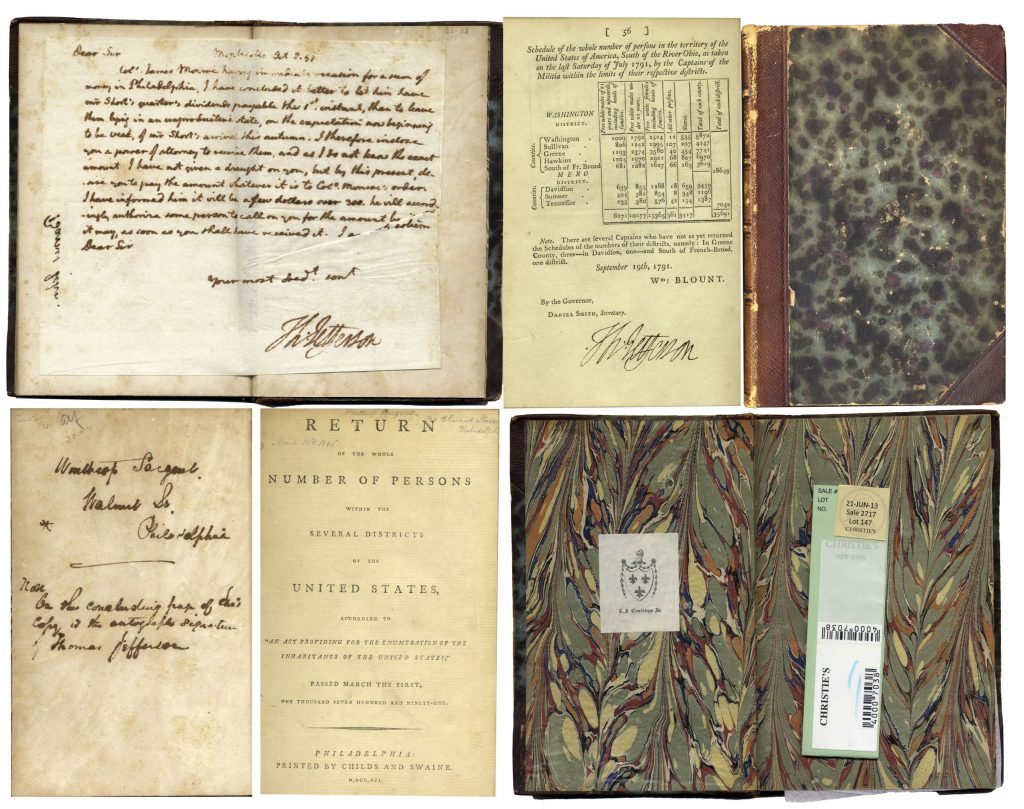 Dear Sir
Monticello Oct 2. 91
Colo. James Monroe having immediate occasion for a sum of
money in Philadelphia, I have concluded it better to let him have
mr Short's quarter's dividends payable the 1st instant, than to leave
them lying in an unproductive state, on the expectation now beginning
to be weak, of mr Short's arrival this autumn. I therefore inclose
you a power of attorney to receive them, and as I do not know the exact
amount I have not given a draught on you, but by this present, de-
sire you to pay the amount whatever it is to Colo. Monroe's order.
I have informed him it will be a few dollars over 300. he will accord-
ingly authorize some person to call on you for the amount be
it may, as soon as you shall have received it. I a esteem
Dear Sir
Your most obedt. servt
Th: Jefferson
[ 56 ]
Schedule of the whole number of persons in the territory of the
United States of America, South of the River Ohio, as taken
on the last Saturday of July 1791, by the Captains of the
Militia within the limits of their respective districts.
WASHINGTON
DISTRICT.
Free white males of 21 years and upwards, including heads of families.
Free white males under 21 years.
Free white females, including heads of families.
All other persons.
Slaves.
Total of each county.
Total of each district.
Counties.
Washington 1009 1792 2524 12 535 5872
Sullivan 806 1242 1995 107 297 4447
Greene 1293 2374 3580 40 454 7741
Hawkins 1204 1970 2921 68 807 6970
South of Fr. Broad 681 1082 1627 66 163 3619
28649
MERO
DISTRICT.
Counties.
Davidson 639 855 1288 18 659 3459
Sumner 404 582 854 8 348 1196
Tennessee 235 380 576 42 154 1387
7042
6271 10277 15365 361 3417 35691
Note. There are several Captains who have not as yet returned
the Schedules of the numbers of their districts, namely: In Greene
County, three—in Davidson, one—and South of French-Broad,
one district.
September 19th, 1791.
Wm: BLOUNT.
By the Governor,
DANIEL SMITH, Secretary.
Th: Jefferson
Winthrop Sargent.
Walnut St.
* Philadelphia
Note
On the concluding page of this
copy is the autograph signature
of Thomas Jefferson
RETURN
OF THE WHOLE
NUMBER OF PERSONS
WITHIN THE
SEVERAL DISTRICTS
OF THE
UNITED STATES,
ACCORDING TO
"AN ACT PROVIDING FOR THE ENUMERATION OF THE
INHABITANTS OF THE UNITED STATES;"
PASSED MARCH THE FIRST,
ONE THOUSAND SEVEN HUNDRED AND NINETY-ONE.
PHILADELPHIA:
PRINTED BY CHILDS AND SWAINE.
M,DCC,XCI.
T. J. Coolidge Jr.
SALE #
LOT
NO.
21-JUN-13
Sale 2717
Lot 147
CHRISTIE'S
CHRISTIE'S
NEW YORK
40007038
CHRISTIE'S
40007038